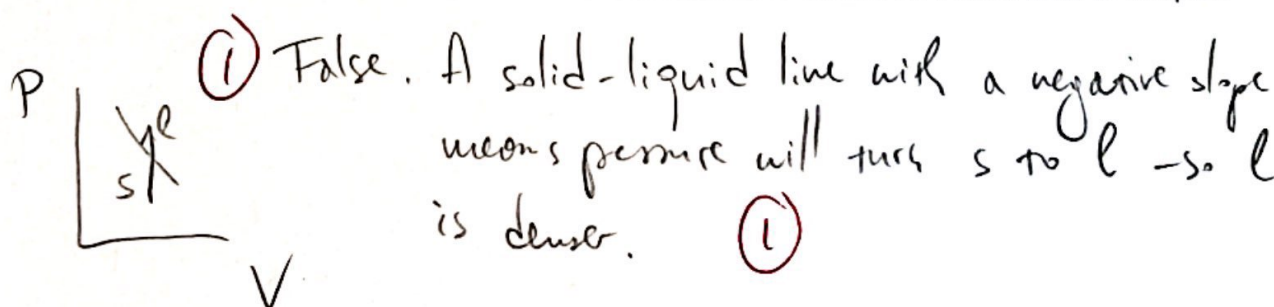 P
① False. A solid-liquid line with a negative slope
l
s
means pressure will turn s to l - so l
is denser. ①
V